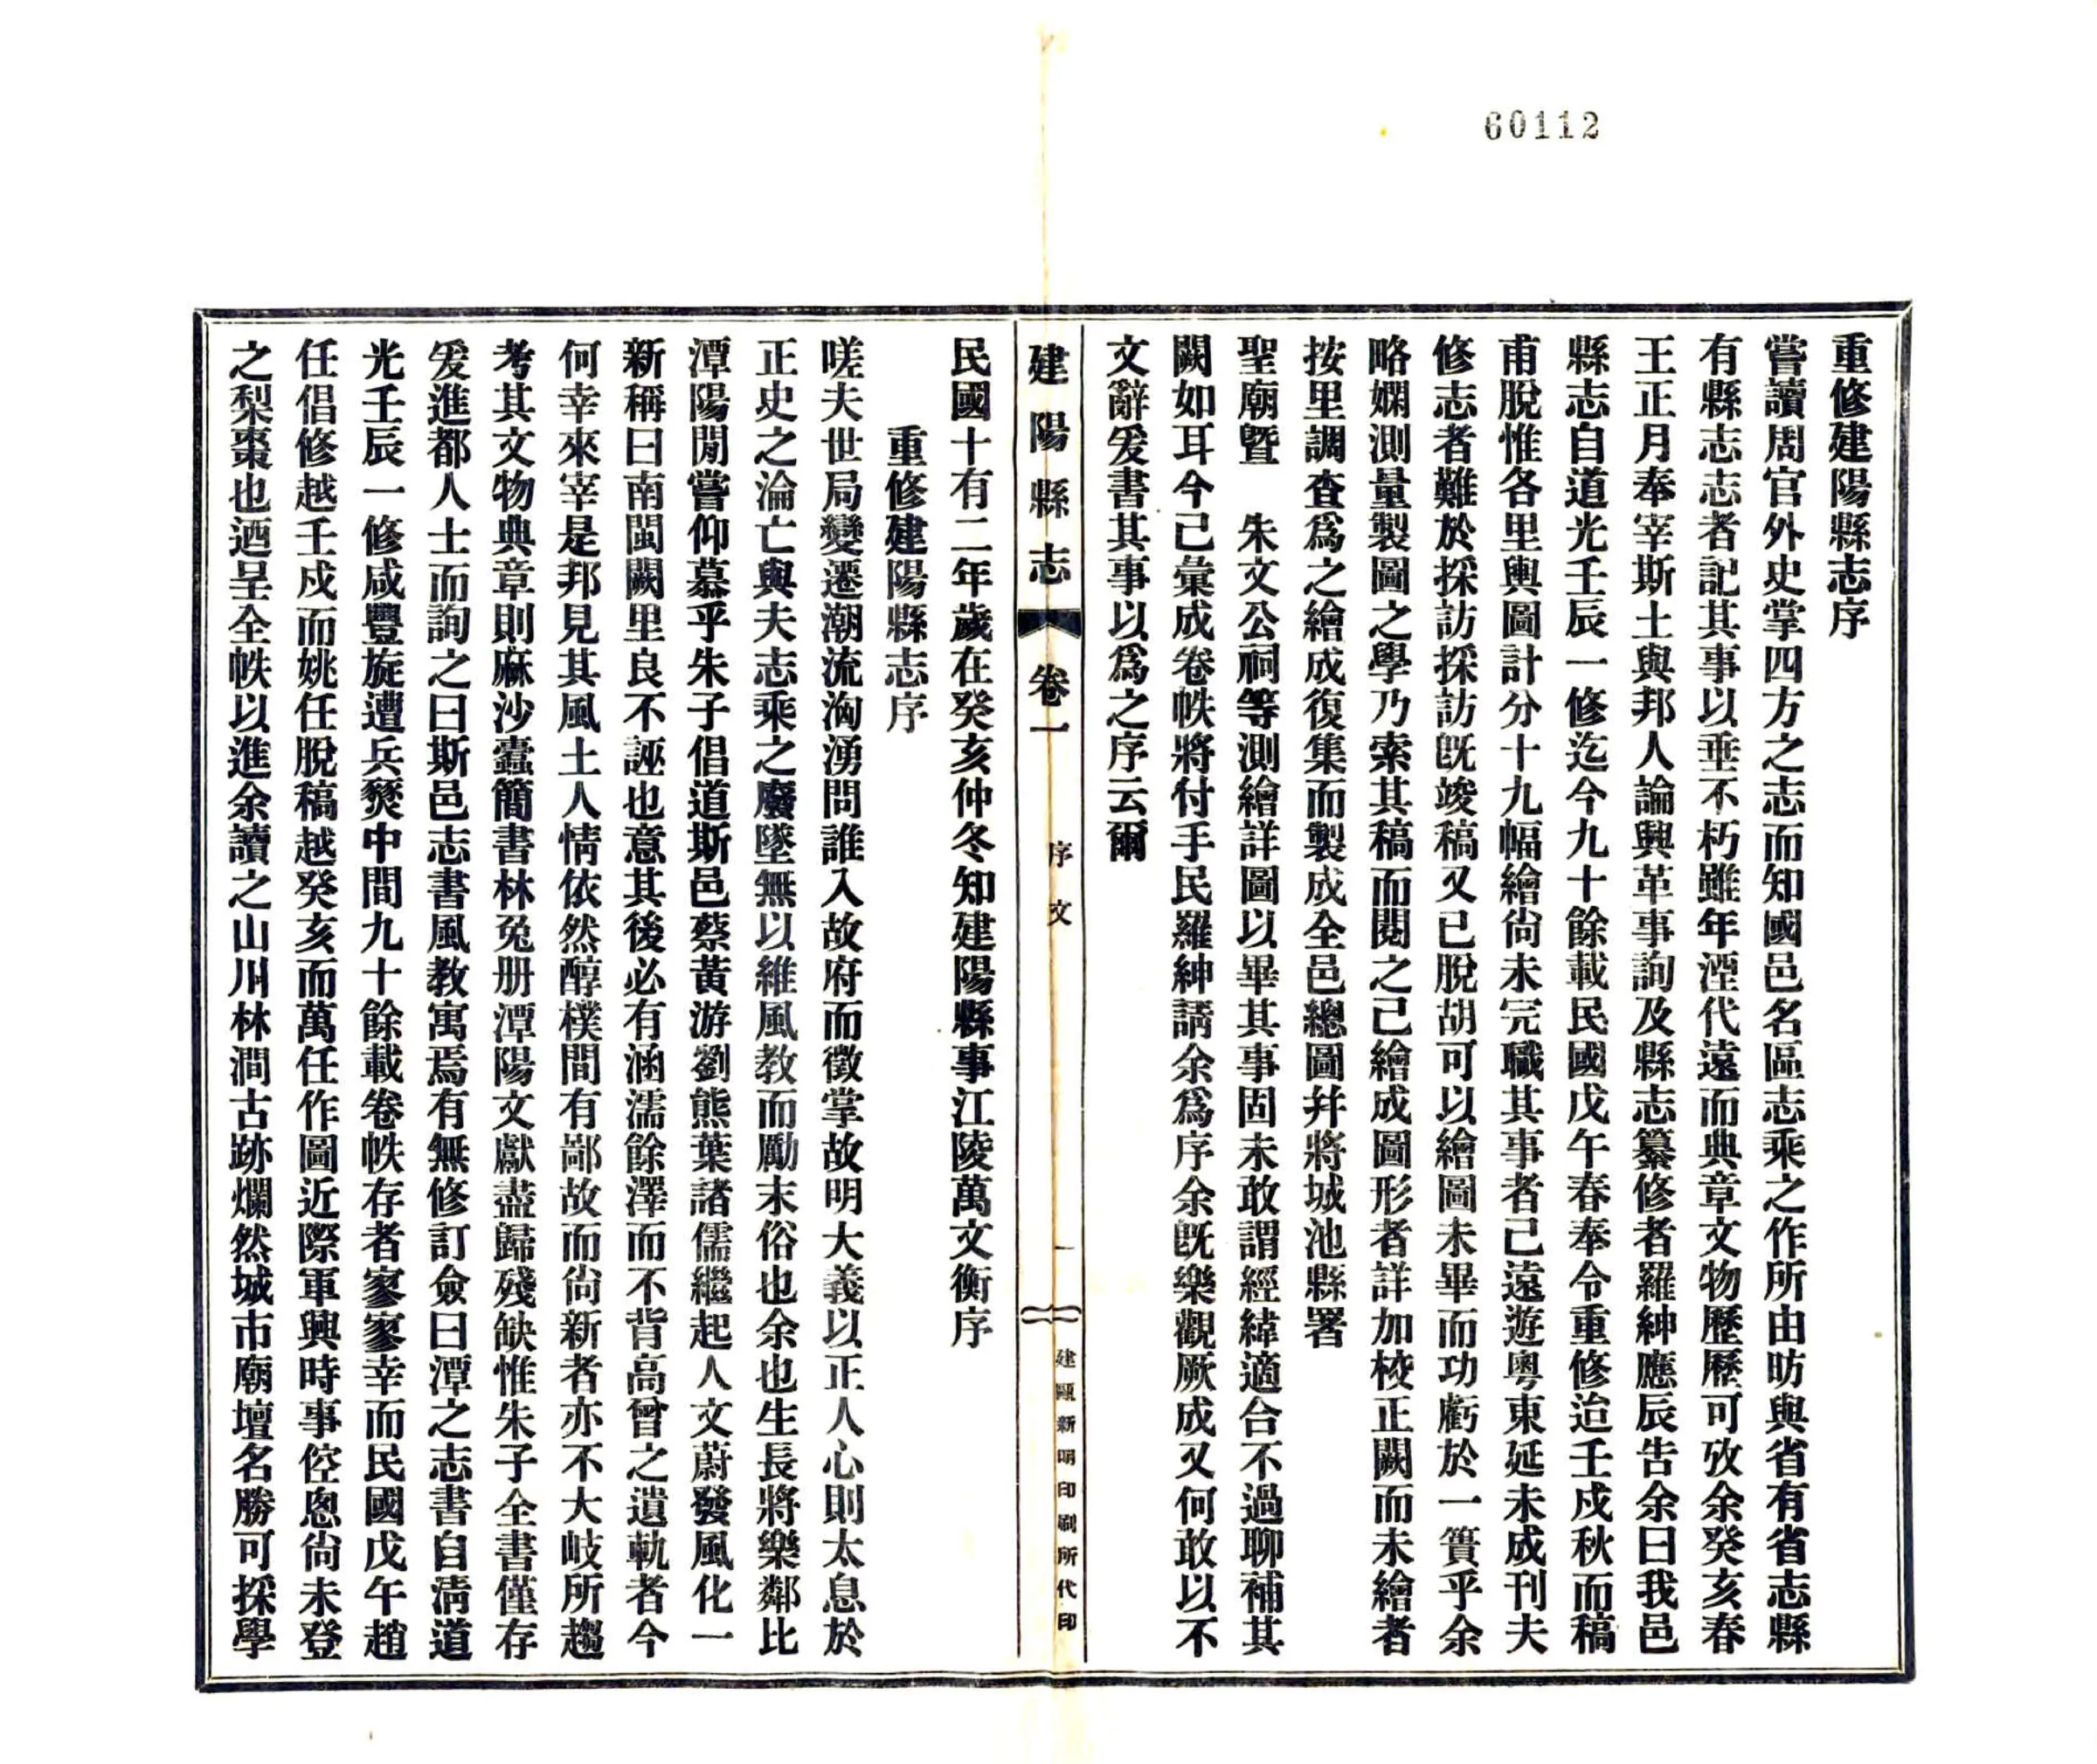 60112
重修建陽縣志序
嘗讀周官外史掌四方之志而知國邑名區志乘之作所由昉與省有省志縣
有縣志志者記其事以垂不朽雖年湮代遠而典章文物歷歷可攷余癸亥春
王正月奉宰斯土與邦人論興革事詢及縣志纂修者羅紳應辰告余曰我邑
縣志自道光壬辰一修迄今九十餘載民國戊午春奉令重修迨壬戍秋而稿
甫脫惟各里輿圖計分十九幅繪尙未完職其事者已遠遊粵東延未成刊夫
修志者難於採訪採訪旣竣稿又已脫胡可以繪圖未畢而功虧於一簣乎余
略嫻測量製圖之學乃索其稿而閱之已繪成圖形者詳加校正闕而未繪者
按里調查爲之繪成復集而製成全邑總圖幷將城池縣署
聖廟曁　朱文公祠等測繪詳圖以畢其事固未敢謂經緯適合不過聊補其
闕如耳今已彙成卷帙將付手民羅紳請余爲序余旣樂觀厥成又何敢以不
文辭爰書其事以爲之序云爾
建陽縣志　卷一　序文　一　建甌新明印刷所代印
民國十有二年歲在癸亥仲冬知建陽縣事江陵萬文衡序
重修建陽縣志序
嗟夫世局變遷潮流洶湧問誰入故府而徵掌故明大義以正人心則太息於
正史之淪亡與夫志乘之廢墜無以維風教而勵末俗也余也生長將樂鄰比
潭陽閒嘗仰慕乎朱子倡道斯邑蔡黃游劉熊葉諸儒繼起人文蔚發風化一
新稱曰南閩闕里良不誣也意其後必有涵濡餘澤而不背高曾之遺軌者今
何幸來宰是邦見其風土人情依然醇樸間有鄙故而尙新者亦不大岐所趨
考其文物典章則麻沙蠧簡書林兔册潭陽文獻盡歸殘缺惟朱子全書僅存
爰進都人士而詢之曰斯邑志書風教寓焉有無修訂僉曰潭之志書自淸道
光壬辰一修咸豐旋遭兵燹中間九十餘載卷帙存者寥寥幸而民國戊午趙
任倡修越壬戍而姚任脫稿越癸亥而萬任作圖近際軍興時事倥偬尙未登
之梨棗也迺呈全帙以進余讀之山川林澗古跡爛然城市廟壇名勝可採學